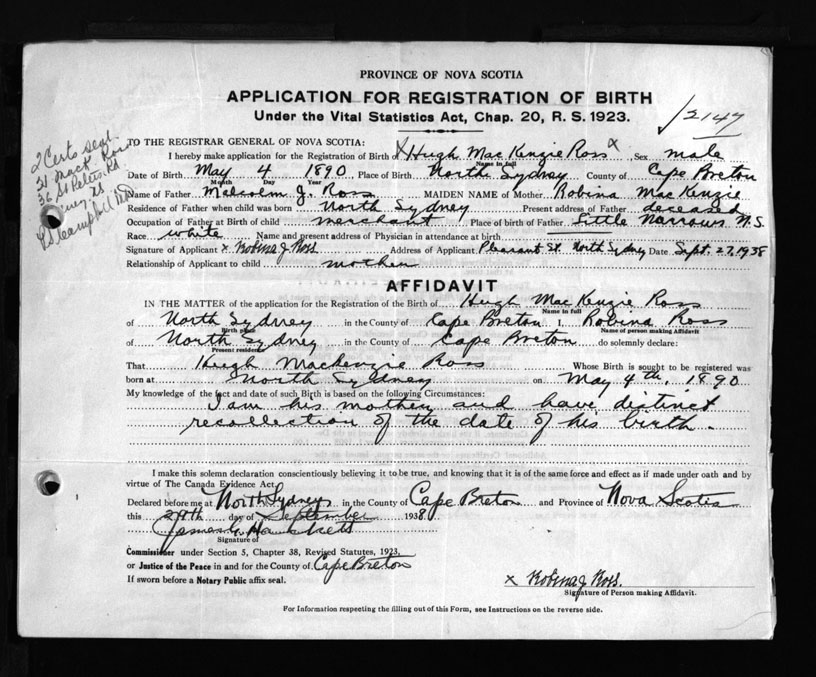 PROVINCE OF NOVA SCOTIA
APPLICATION FOR REGISTRATION OF BIRTH
Under the Vital Statistics Act, Chap. 20, R. S. 1923.
2147
2 Certs sent
36 St Peters Rd
TO THE REGISTRAR GENERAL OF NOVA SCOTIA:
I hereby make application for the Registration of Birth of x Hugh Mac Kenzie Ross x Sex male
Name in full
Date of Birth May 4 1890 Place of Birth North Sydney County of Cape Breton
Month Day Year
Name of Father Malcolm J. Ross MAIDEN NAME of Mother Robina Mac Kenzie
Residence of Father when child was born North Sydney Present address of Father deceased
Occupation of Father at Birth of child merchant Place of birth of Father Little Narrows N.S.
Race white Name and present address of Physician in attendance at birth
Signature of Applicant x Robina J. Ross Address of Applicant Pleasant St. North Sydney Date Sept. 27, 1938
Relationship of Applicant to child mother
AFFIDAVIT
IN THE MATTER of the application for the Registration of the Birth of Hugh Mac Kenzie Ross
Name in full
of North Sydney in the County of Cape Breton Robina Ross
Birth place Name of person making Affidavit
of North Sydney in the County of Cape Breton do solemnly declare:
Present residence
That Hugh MacKenzie Ross Whose Birth is sought to be registered was
born at North Sydney on May 4th, 1890
My knowledge of the fact and date of such Birth is based on the following Circumstances:
I am his mother and have distinct
recollection of the date of his birth.
I make this solemn declaration conscientiously believing it to be true, and knowing that it is of the same force and effect as if made under oath and by
virtue of The Canada Evidence Act.
Declared before me at North Sydney in the County of Cape Breton and Province of Nova Scotia
this day of September 1938
Signature of
Commissioner under Section 5, Chapter 38, Revised Statutes, 1923,
or Justice of the Peace in and for the County of Cape Breton
If sworn before a Notary Public affix seal.
x Robina J. Ross.
Signature of Person making Affidavit.
For Information respecting the filling out of this Form, see Instructions on the reverse side.